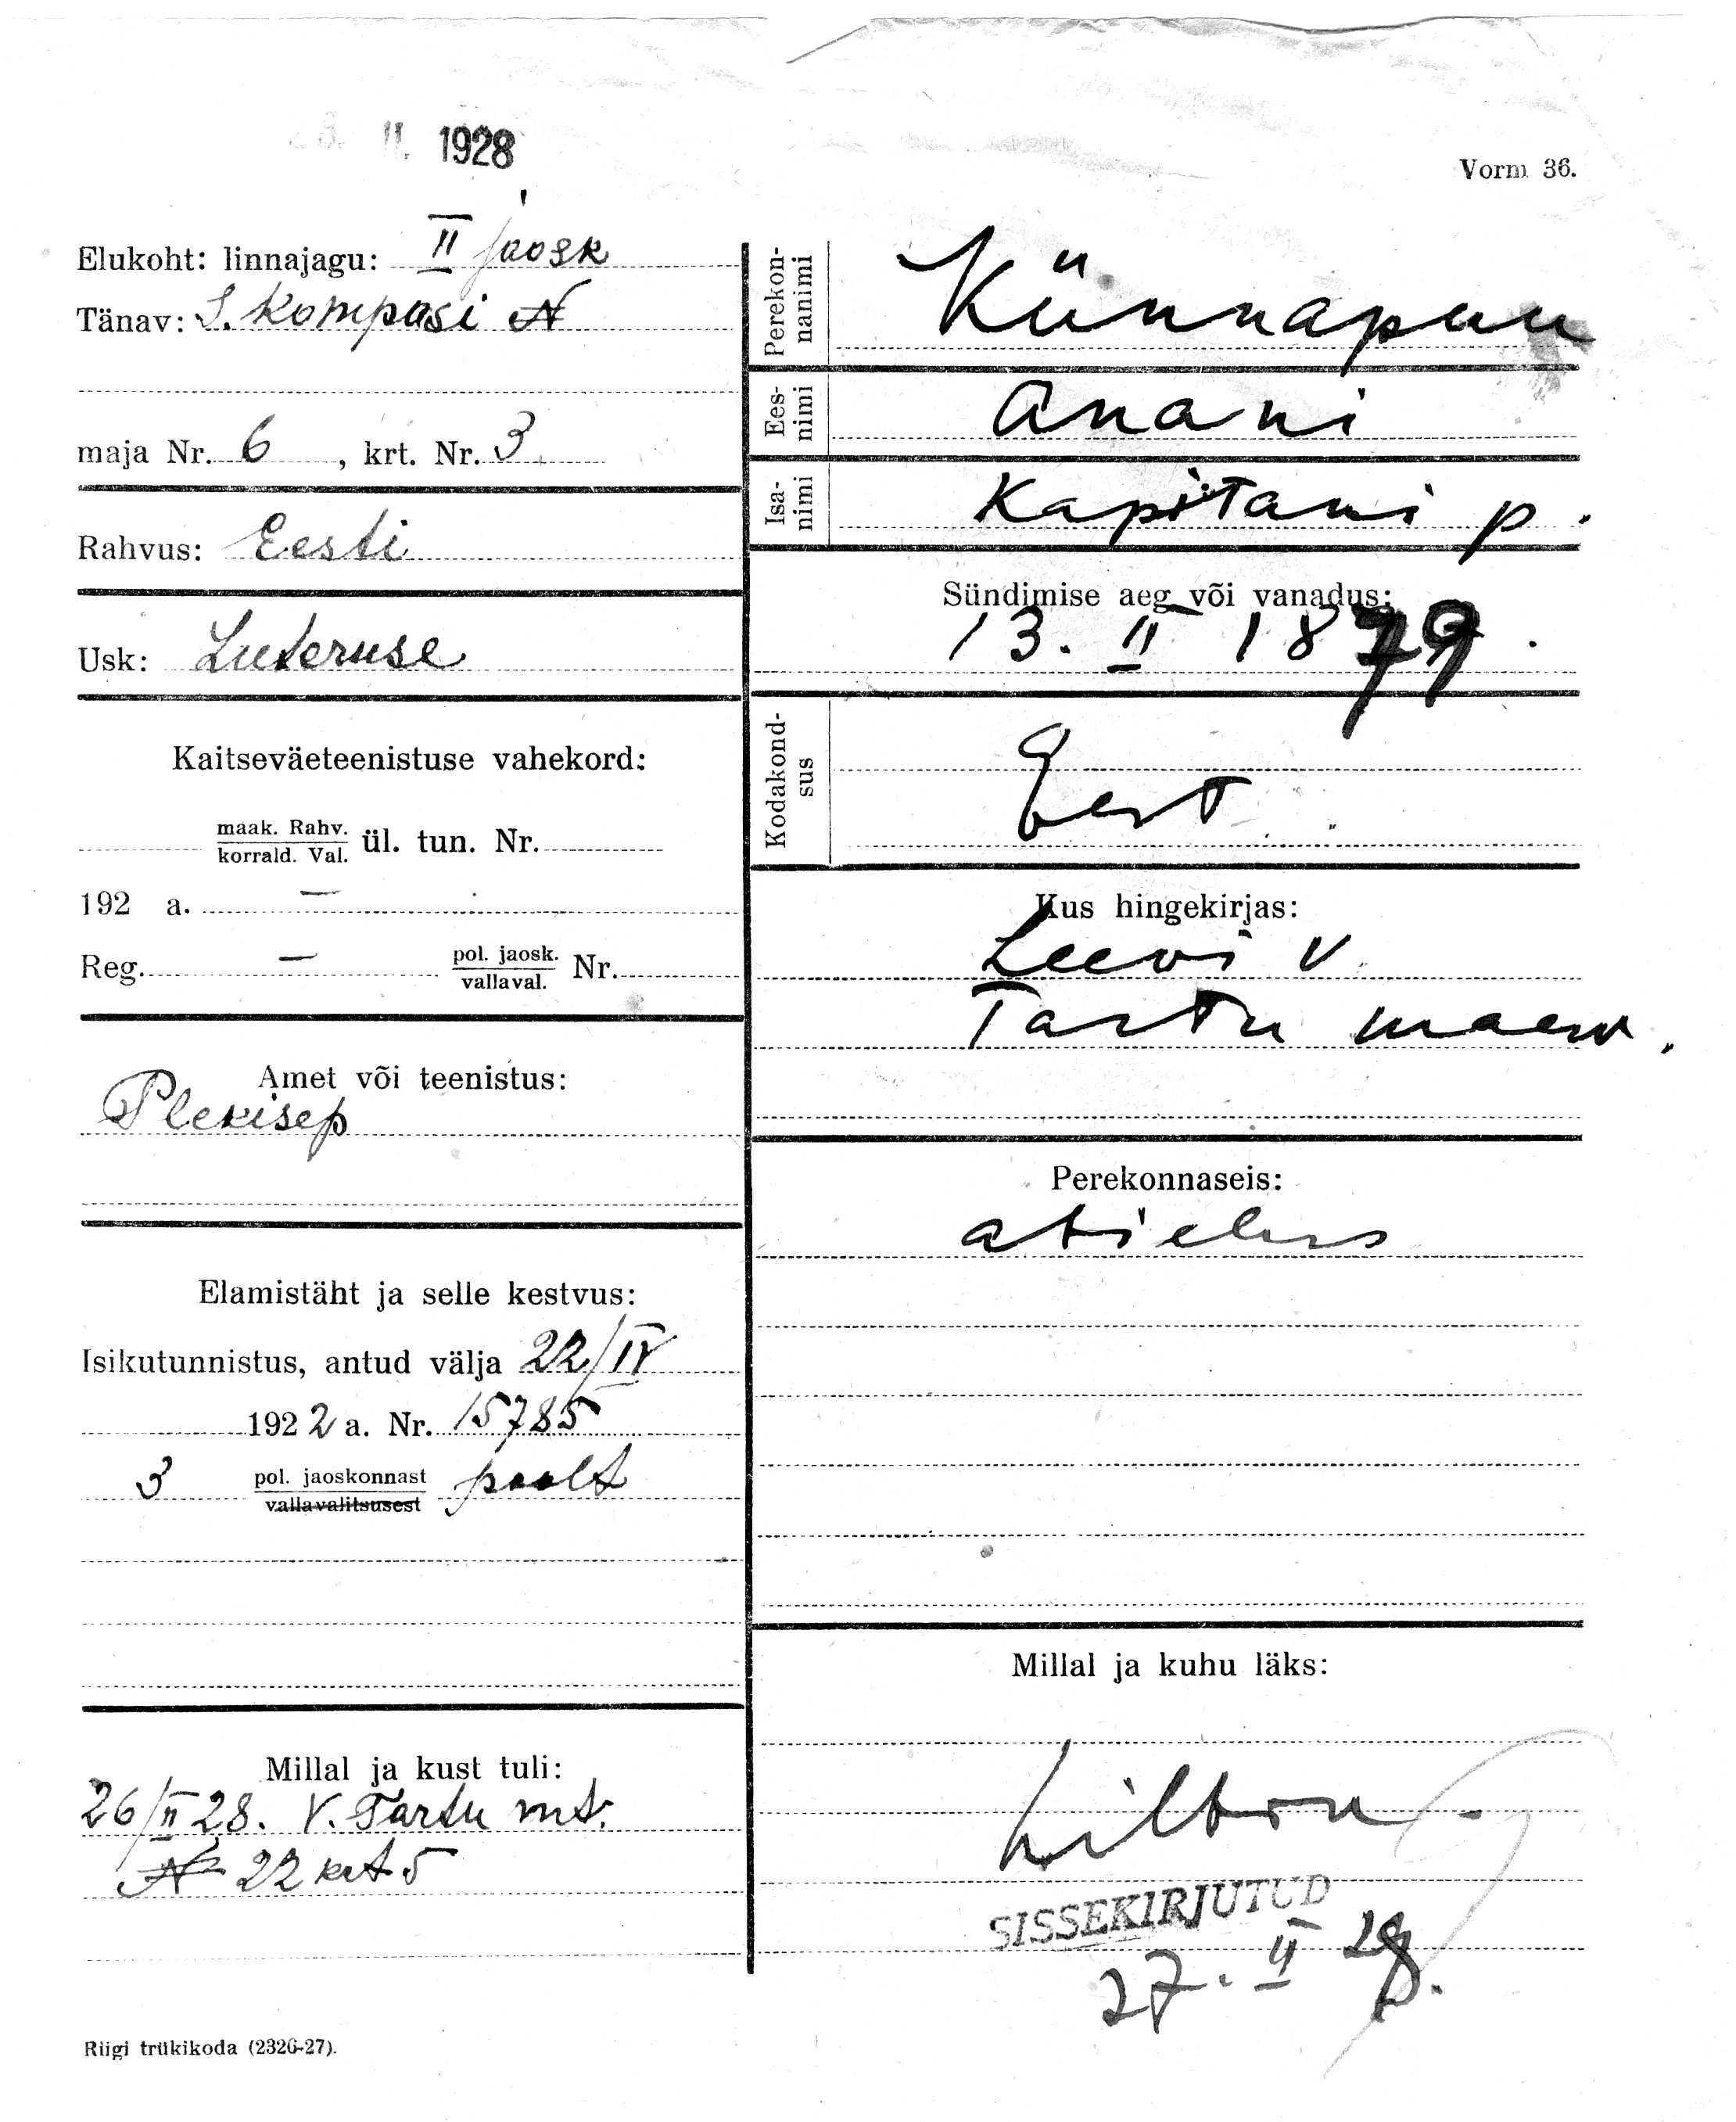 II. 1928
Vorm 36.
Elukoht: linnajagu: II jaosk
Tänav: S. Kompasi N
maja Nr. 6, krt. Nr. 3
Rahvus: Eesti
Usk: Luteruse
Kaitseväeteenistuse vahekord:
maak. Rahv. ül. tun. Nr.
korrald. Val.
192 a. —
Reg. — pol. jaosk. Nr.
vallaval.
Amet või teenistus:
Plekisep
Elamistäht ja selle kestvus:
Isikutunnistus, antud välja 22/IV
1922 a. Nr. 15785
3 pol. jaoskonnast poolt
vallavalitsusest
Millal ja kust tuli:
26/II 28. V. Tartu mt.
N 22 krt 5
Perekon-
nanimi
Künnapuu
Ees-
nimi
Anani
Isa-
nimi
Kapitani p.
Sündimise aeg või vanadus:
13. II 1879.
Kodakond-
sus
Eest
Kus hingekirjas:
Leevi v
Tartu maew.
Perekonnaseis:
abielus
Millal ja kuhu läks:
SISSEKIRJUTUD
27. II 28.
Riigi trükikoda (2326-27).